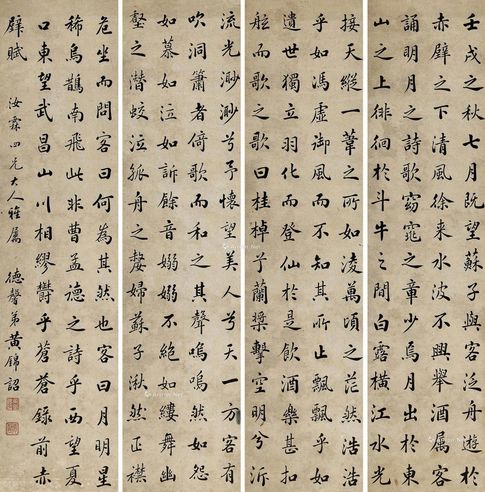 壬戌之秋七月既望蘇子與客泛舟遊於
赤壁之下清風徐來水波不興舉酒屬客
誦明月之詩歌窈窕之章少焉月出於東
山之上徘徊於斗牛之間白露橫江水光
接天縱一葦之所如淩萬頃之茫然浩浩
乎如馮虛御風而不知其所止飄飄乎如
遺世獨立羽化而登仙於是飲酒樂甚扣
舷而歌之歌曰桂棹兮蘭槳擊空明兮泝
流光渺渺兮予懷望美人兮天一方客有
吹洞簫者倚歌而和之其聲嗚嗚然如怨
如慕如泣如訴餘音嫋嫋不絕如縷舞幽
壑之潛蛟泣孤舟之嫠婦蘇子愀然正襟
危坐而問客曰何為其然也客曰月明星
稀烏鵲南飛此非曹孟德之詩乎西望夏
口東望武昌山川相繆鬱乎蒼蒼錄前赤
壁賦
汝霖四兄大人雅屬 德馨弟黃錦詔